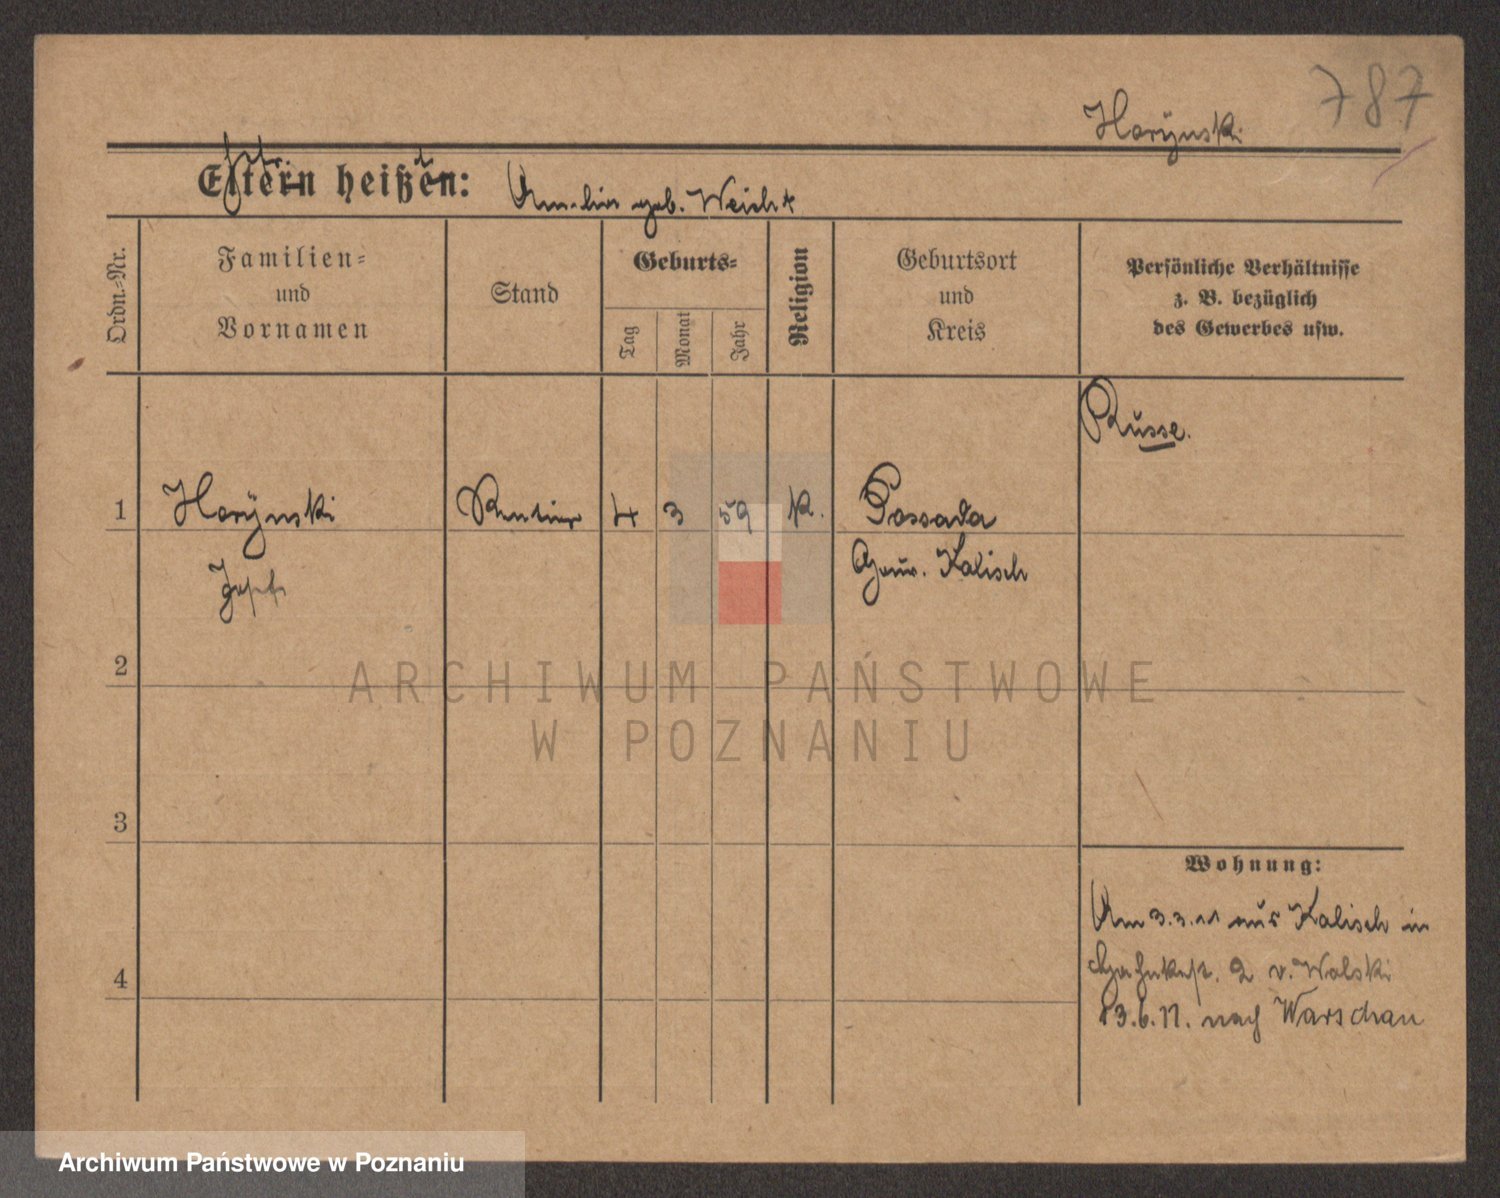 787
Horÿnski
Eltern heißen: geb. Weicht
Ordn.-Nr.
Familien-
und
Vornamen
Stand
Geburts-
Tag
Monat
Jahr
Religion
Geburtsort
und
Kreis
Persönliche Verhältnisse
z. B. bezüglich
des Gewerbes usw.
Russe.
1 Horÿnski Rentier 4 3 59 k. Possada
Gouv. Kalisch
2
ARCHIWUM PAŃSTWOWE
W POZNANIU
3
4
Wohnung:
Am 3.3.11 aus Kalisch in
2 v. Wolski
13.6.11. nach Warschau
Archiwum Państwowe w Poznaniu